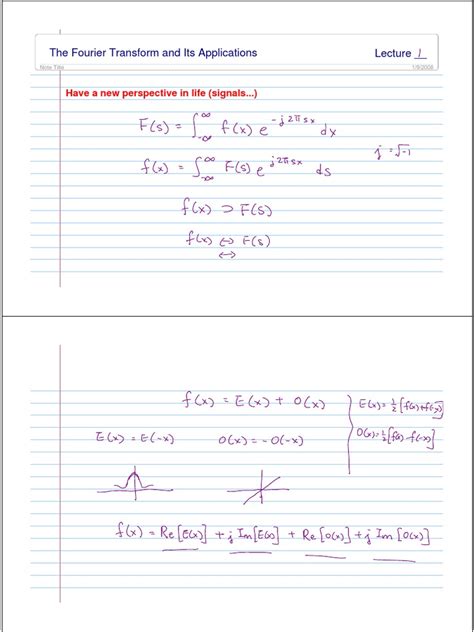 The Fourier Transform and Its Applications Lecture 1
Note Title 1/9/2008
Have a new perspective in life (signals...)
F(s) = ∫_{-∞}^{∞} f(x) e^{-j2πsx} dx
j = √-1
f(x) = ∫_{-∞}^{∞} F(s) e^{j2πsx} ds
f(x) ⊃ F(s)
f(x) ⇔ F(s)
⇔
f(x) = E(x) + O(x) E(x) = 1/2 [f(x)+f(-x)]
E(x) = E(-x) O(x) = -O(-x) O(x) = 1/2 [f(x) - f(-x)]
f(x) = Re[E(x)] + j Im[E(x)] + Re[O(x)] + j Im[O(x)]